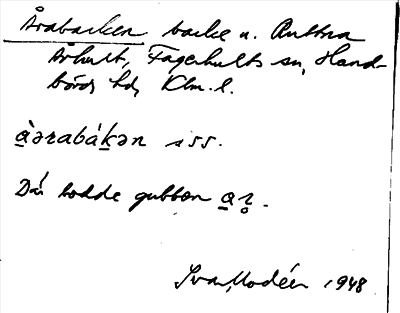 Årabacken backe u. Ruttna
Århult, Fagerhults sn, Hand-
börds hd, Klm. l.
àərabákən ss.
Där bodde gubben
Ivar Modéer 1948